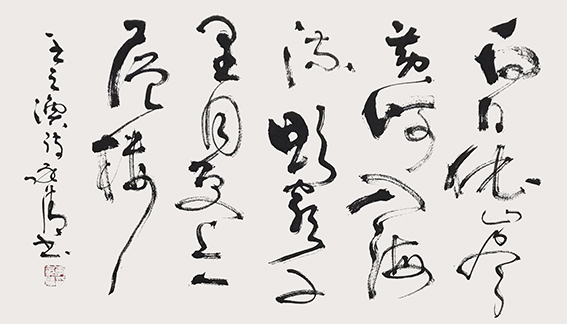 白日依山尽
黄河入海
流欲穷千
里目更上一
层楼
王之涣诗书